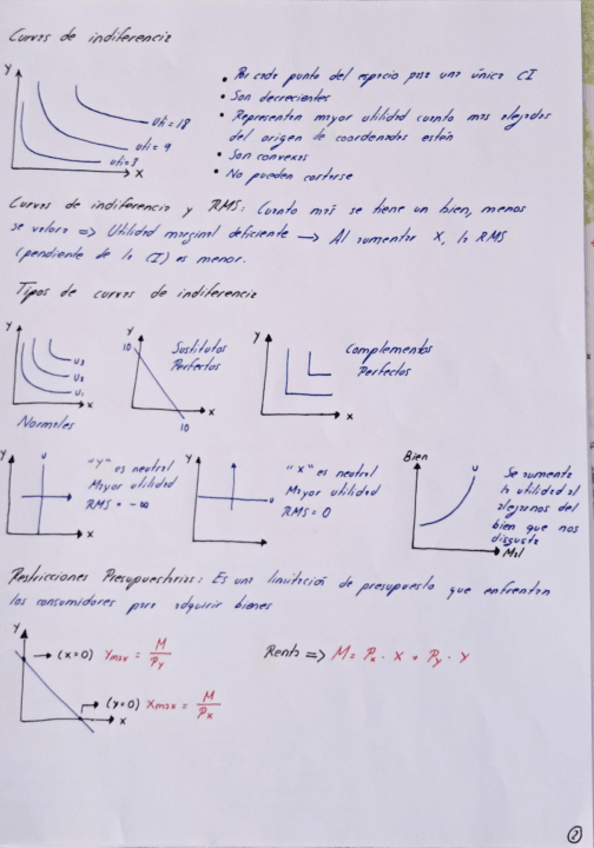 Curvas de indiferencia
Y
• Por cada punto del espacio pasa una única CI
• Son decrecientes
• Representan mayor utilidad cuanto mas alejadas
del origen de coordenadas están
• Son convexas
• No pueden cortarse
Uti = 18
Uti = 9
Uti = 3
X
Curvas de indiferencia y RMS: Cuanto más se tiene un bien, menos
se valora => Utilidad marginal deficiente → Al aumentar X, la RMS
(pendiente de la CI) es menor.
Tipos de curvas de indiferencia
Y
U3
U2
U1
X
Normales
Y
10
10
X
Sustitutos
Perfectos
Y
X
Complementos
Perfectos
Y
U
X
"Y" es neutral
Mayor utilidad
RMS = -∞
Y
U
"X" es neutral
Mayor utilidad
RMS = 0
Bien
U
Mal
Se aumenta
la utilidad al
alejarnos del
bien que nos
disgusta
Restricciones Presupuestarias: Es una limitación de presupuesto que enfrentan
los consumidores para adquirir bienes
Y
→ (x=0) Ymax = M/Py
Renta => M = Px · X + Py · Y
→ (y=0) Xmax = M/Px
X
2